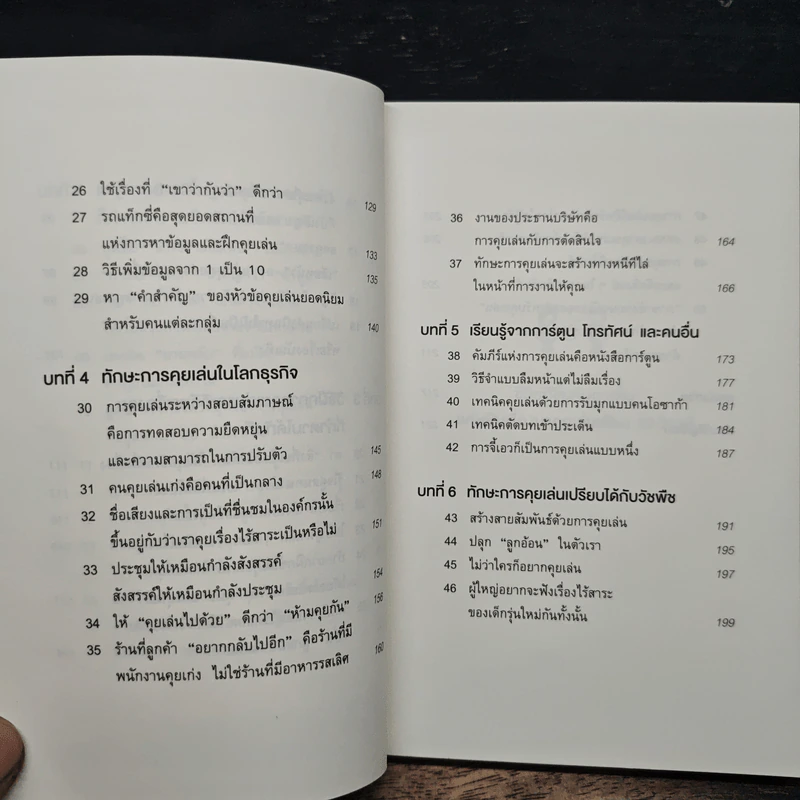 26 ใช้เรื่องที่ “เขาว่ากันว่า” ดีกว่า 129
27 รถแท็กซี่คือสุดยอดสถานที่
แห่งการหาข้อมูลและฝึกคุยเล่น 133
28 วิธีเพิ่มข้อมูลจาก 1 เป็น 10 135
29 หา “คำสำคัญ” ของหัวข้อคุยเล่นยอดนิยม
สำหรับคนแต่ละกลุ่ม 140
บทที่ 4 ทักษะการคุยเล่นในโลกธุรกิจ
30 การคุยเล่นระหว่างสอบสัมภาษณ์
คือการทดสอบความยืดหยุ่น
และความสามารถในการปรับตัว 145
31 คนคุยเล่นเก่งคือคนที่เป็นกลาง 148
32 ชื่อเสียงและการเป็นที่ชื่นชมในองค์กรนั้น
ขึ้นอยู่กับว่าเราคุยเรื่องไร้สาระเป็นหรือไม่ 151
33 ประชุมให้เหมือนกำลังสังสรรค์
สังสรรค์ให้เหมือนกำลังประชุม 154
34 ให้ “คุยเล่นไปด้วย” ดีกว่า “ห้ามคุยกัน” 156
35 ร้านที่ลูกค้า “อยากกลับไปอีก” คือร้านที่มี
พนักงานคุยเก่ง ไม่ใช่ร้านที่มีอาหารรสเลิศ 160
36 งานของประธานบริษัทคือ
การคุยเล่นกับการตัดสินใจ 164
37 ทักษะการคุยเล่นจะสร้างทางหนีทีไล่
ในหน้าที่การงานให้คุณ 166
บทที่ 5 เรียนรู้จากการ์ตูน โทรทัศน์ และคนอื่น
38 คัมภีร์แห่งการคุยเล่นคือหนังสือการ์ตูน 173
39 วิธีจำแบบลืมหน้าแต่ไม่ลืมเรื่อง 177
40 เทคนิคคุยเล่นด้วยการรับมุกแบบคนโอซาก้า 181
41 เทคนิคตัดบทเข้าประเด็น 184
42 การจี้เอวก็เป็นการคุยเล่นแบบหนึ่ง 187
บทที่ 6 ทักษะการคุยเล่นเปรียบได้กับวัชพืช
43 สร้างสายสัมพันธ์ด้วยการคุยเล่น 191
44 ปลุก “ลูกอ้อน” ในตัวเรา 195
45 ไม่ว่าใครก็อยากคุยเล่น 197
46 ผู้ใหญ่อยากจะฟังเรื่องไร้สาระ
ของเด็กรุ่นใหม่กันทั้งนั้น 199